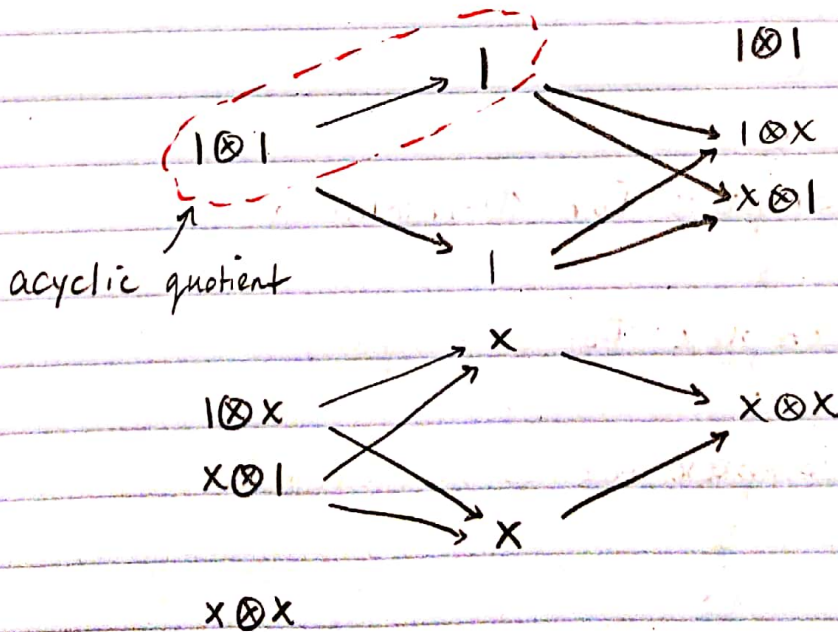 1 1⊗1
1⊗1 1⊗x
x⊗1
acyclic quotient 1
x
1⊗x x⊗x
x⊗1
x
x⊗x